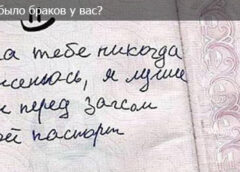 было браков у вас?
на тебе никогда
женюсь, я лучше
перед загсом
паспорт